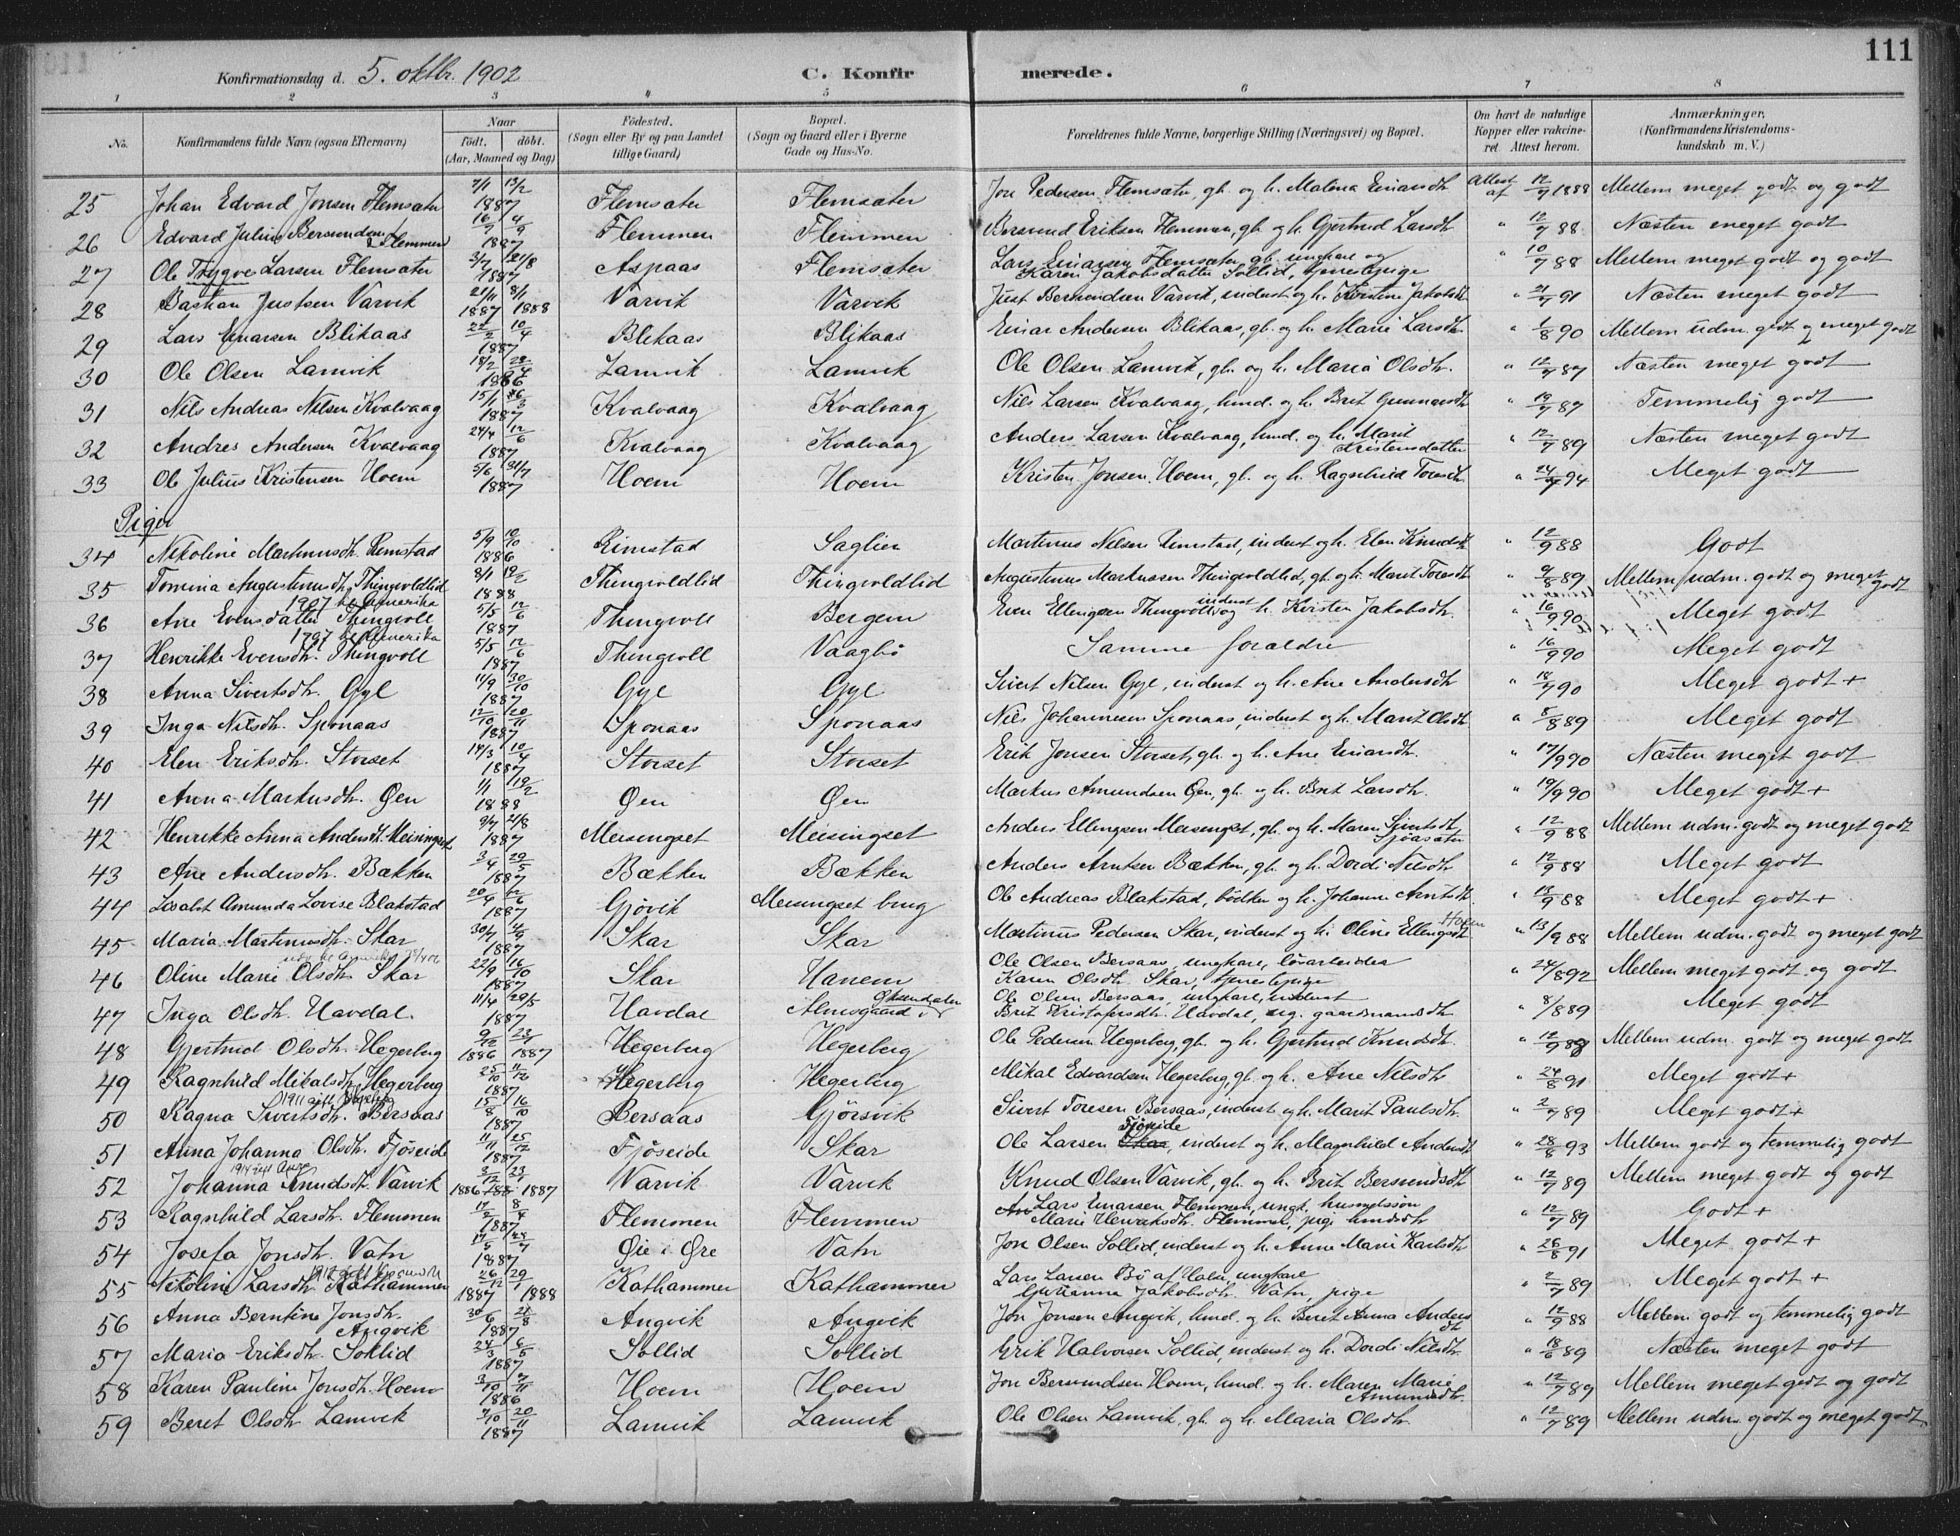 111
Konfirmationsdag d. 5. oktbr. 1902
C. Konfirmerede.
1 2 3 4 5 6 7 8
No. Konfirmandens fulde Navn (ogsaa Efternavn) Naar født. døbt. (Aar, Maaned og Dag) Fødested. (Sogn eller By og paa Landet tillige Gaard) Bopæl. (Sogn og Gaard eller i Byerne Gade og Hus-No. Forældrenes fulde Navne, borgerlige Stilling (Næringsvei) og Bopæl. Om havt de naturlige Kopper eller vakcineret. Attest herom. Anmærkninger, (Konfirmandens Kristendomskundskab m. V.)
25 Johan Edvard Jonsen Flemsæter 7/1 13/2 1887 Flemsæter Flemsæter Jon Pedersen Flemsæter, gb. og h. Malena Einarsdtr. Attest af 12/7 1888 Mellem meget godt og godt
26 Edvard Julius Bersundsen Flemmen 16/7 4/9 1887 Flemmen Flemmen Bersund Eriksen Flemmen, gb. og h. Gjertrud Larsdtr. " 12/7 88 Næsten meget godt
27 Ole Trygve Larsen Flemsæter 3/7 21/8 1887 Aspaas Flemsæter Lars Einarsen Flemsæter, gb. ungkare og Karen Jakobsdatter Sollid, tjenestepige " 10/7 88 Mellem meget godt og godt
28 Bastian Justsen Varvik 21/11 8/1 1887 1888 Varvik Varvik Just Bersundsen Varvik, inderst og h. Kirstine Jakobsdtr. " 21/7 91 Næsten meget godt
29 Lars Einarsen Blikaas 22/2 10/4 1887 Blikaas Blikaas Einar Andersen Blikaas, gb. og h. Marie Larsdtr. " 1/8 90 Mellem udm. godt og meget godt
30 Ole Olsen Lamvik 18/2 1886 Lamvik Lamvik Ole Olsen Lamvik, gb. og h. Maria Olsdtr. " 12/7 87 Næsten meget godt
31 Nils Andreas Nilsen Kvalvaag 15/1 1887 Kvalvaag Kvalvaag Nils Larsen Kvalvaag, husmd. og h. Brit Gunnarsdtr. " 13/7 87 Temmelig godt
32 Andres Andersen Kvalvaag 24/4 12/6 1887 Kvalvaag Kvalvaag Anders Larsen Kvalvaag, husmd. og h. Marit Kristensdatter " 12/7 89 Næsten meget godt
33 Ole Julius Kristensen Hoem 5/6 31/7 1887 Hoem Hoem Kristen Jonsen Hoem, gb. og h. Ragnhild Toresdtr. " 24/7 94 Meget godt
Piger
34 Nikoline Martinusdtr. Rimstad 5/9 10/10 1886 Rimstad Saglien Martinus Nilsen Rimstad, inderst og h. Elen Knudsdtr. " 12/9 88 Godt
35 Tomina Augustinusdtr. Thingvoldlid 8/1 19/2 1888 Thingvoldlid Thingvoldlid Augustinus Markussen Thingvoldlid, gb. og h. Marit Toresdtr. " 9/8 89 Mellem udm. godt og meget godt
1907 til Amerika
36 Ane Evensdatter Thingvoll 5/5 12/6 1887 Thingvoll Bergem Even Ellingsen Thingvoll, inderst og h. Kirsten Jakobsdtr. " 16/9 90 Meget godt
1907 til Amerika
37 Henrikke Evensdtr. Thingvoll 5/5 12/6 1887 Thingvoll Vaagbø Samme forældre " 16/9 90 Meget godt
38 Anna Sivertsdtr. Gyl 11/9 30/10 1887 Gyl Gyl Sivert Nilsen Gyl, inderst og h. Ane Andersdtr. " 18/7 90 Meget godt +
39 Inga Nilsdtr. Sponaas 12/10 20/11 1887 Sponaas Sponaas Nils Johannesen Sponaas, inderst og h. Marit Olsdtr. " 8/8 89 Meget godt
40 Elen Eriksdtr. Storset 14/3 10/4 1887 Storset Storset Erik Jonsen Storset, gb. og h. Ane Einarsdtr. " 17/9 90 Næsten meget godt
41 Anna Markusdtr. Øen 1/1 19/2 1888 Øen Øen Markus Amundsen Øen, gb. og h. Brit Larsdtr. " 19/9 90 Meget godt +
42 Henrikke Anna Andersdtr. Meisingset 9/7 21/8 1887 Meisingset Meisingset Anders Ellingsen Meisingset, gb. og h. Maren Sivertsdtr. Sjøasæter " 12/9 88 Mellem udm. godt og meget godt
43 Ane Andersdtr. Bækken 3/4 29/5 1887 Bækken Bækken Anders Arntsen Bækken, gb. og h. Dordi Nilsdtr. " 12/9 88 Meget godt
44 Lisabet Amunda Lovise Blakstad 20/4 12/6 1887 Gjøvik Meisingset brug Ole Andreas Blakstad, bødker og h. Johanna Arntsdtr. " 13/9 88 Meget godt +
45 Maria Martinusdtr. Skar 30/7 4/9 1887 Skar Skar Martinus Pedersen Skar, inderst og h. Oline Ellingsdtr. Hoem " 13/9 88 Mellem udm. godt og meget godt
46 Oline Marie Olsdtr. Skar 22/9 16/10 1887 Skar Hanem Ole Olsen Bersaas, ungkare, løsarbeider Karen Olsdtr. Skar, tjenestepige " 24/8 92 Mellem meget godt og godt
47 Inga Olsdtr. Havdal. 11/4 29/5 1887 Havdal Almsgaard i Øksendalen Ole Olsen Bersaas, ungkare, inderst Brit Kristofersdtr. Havdal, ug. gaardmandsdtr. " 8/8 89 Meget godt
48 Gjertrud Olsdtr. Hegerberg 9/12 23/1 1886 1887 Hegerberg Hegerberg Ole Pedersen Hegerberg, gb. og h. Gjertrud Knudsdtr. " 12/9 88 Mellem udm. godt og meget godt
49 Ragnhild Mikalsdtr. Hegerberg 25/10 11/12 1887 Hegerberg Hegerberg Mikal Edvardsen Hegerberg, gb. og h. Ane Nilsdtr. " 24/8 91 Meget godt +
1911 gift
50 Ragna Sivertsdtr. Bersaas 15/8 16/10 1887 Bersaas Gjørsvik Sivert Toresen Bersaas, inderst og h. Marit Paulsdtr. " 2/7 89 Meget godt +
51 Anna Johanna Olsdtr. Fjøseide 11/11 25/12 1887 Fjøseide Skar Ole Larsen Fjøseide, inderst og h. Magnhild Andersdtr. " 28/8 93 Mellem godt og temmelig godt
1914 gift
52 Johanna Knudsdtr. Varvik 3/12 23/1 1886 1887 Varvik Varvik Knud Olsen Varvik, gb. og h. Brit Bersundsdtr. " 12/7 89 Mellem meget godt og godt
53 Ragnhild Larsdtr. Flemmen 17/2 8/4 1887 Flemmen Flemmen Lars Einarsen Flemmen, ungk. husmandssøn Marie Henriksdtr. Flemmen, pige husmdsdtr. " 12/7 89 Godt +
54 Josefa Jonsdtr. Vatn 1887 Øie i Øre Vatn Jon Olsen Sollid, inderst og h. Anne Marie Karlsdtr. " 26/8 91 Meget godt +
55 Nikoline Larsdtr. Kathammer 26/12 29/1 1887 1888 Kathammer Kathammer Lars Larsen Bø af Halsa, ungkare Gurianna Jakobsdtr. Vatn, pige " 2/7 89 Meget godt +
56 Anna Berntine Jonsdtr. Angvik 30/6 21/8 1887 Angvik Angvik Jon Jonsen Angvik, husmd. og h. Beret Anna Andersdtr. " 12/9 88 Mellem godt og temmelig godt
57 Maria Eriksdtr. Sollid 24/3 6/5 1887 Sollid Sollid Erik Halvorsen Sollid, inderst og h. Dordi Nilsdtr. " 18/6 89 Næsten meget godt
58 Karen Pauline Jonsdtr. Hoem 3/10 7/11 1886 Hoem Hoem Jon Bersundsen Hoem, husmd. og h. Maren Marie Amundsdtr. " 12/7 89 Mellem meget godt og godt
59 Beret Olsdtr. Lamvik 7/10 20/11 1887 Lamvik Lamvik Ole Olsen Lamvik, gb. og h. Maria Olsdtr. " 12/7 89 Mellem udm. godt og meget godt